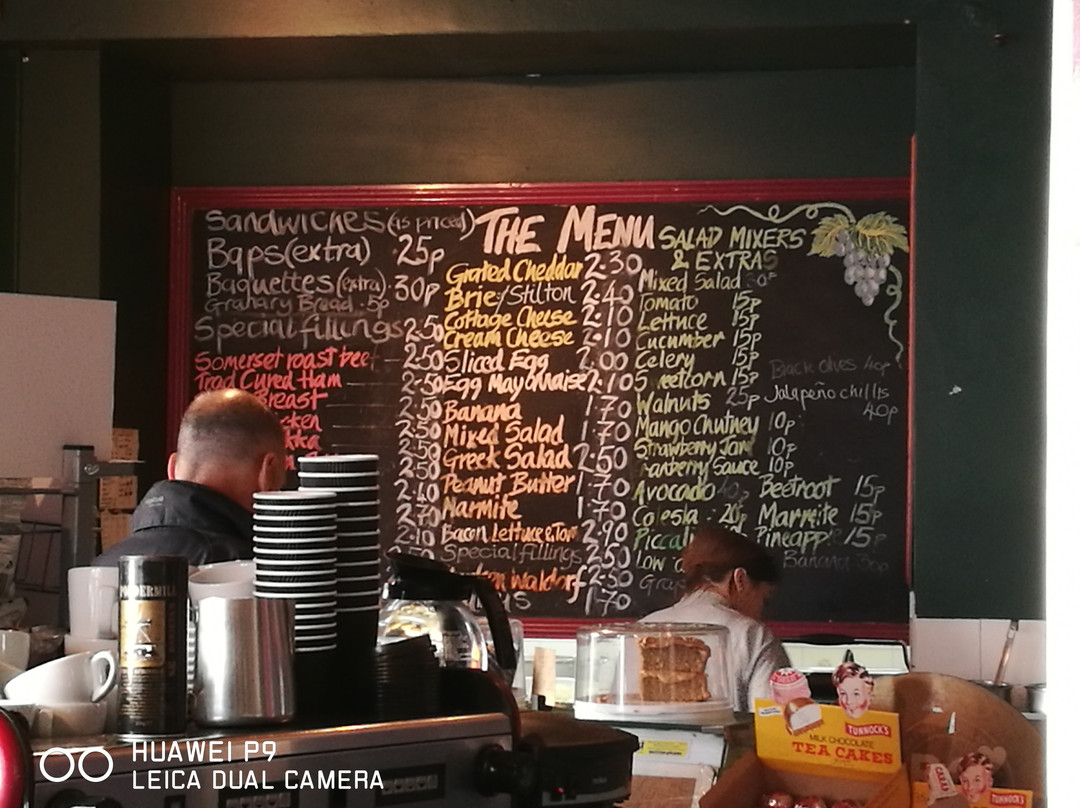 Sandwiches (as priced)
Baps (extra) 25p
Baguettes (extra) 30p
Granary Bread 5p
Special fillings 2.50
Somerset roast beef 2.50
Trad Cured Ham 2.50
Breast 2.50
2.50
2.50
2.50
2.40
2.70
2.10
THE MENU
Grated Cheddar 2.30
Brie/Stilton 2.40
Cottage Cheese 2.10
Cream Cheese 2.10
Sliced Egg 2.00
Egg Mayonnaise 2.10
Banana 1.70
Mixed Salad 1.70
Greek Salad 2.50
Peanut Butter 1.70
Marmite 1.70
Bacon Lettuce & Tom 2.90
Special fillings 2.50
waldorf 2.50
1.70
SALAD MIXERS
& EXTRAS
Mixed Salad
Tomato 15p
Lettuce 15p
Cucumber 15p
Celery 15p
Sweetcorn 15p
Walnuts 25p
Mango Chutney 10p
Strawberry Jam 10p
Cranberry Sauce 10p
Avocado 40p
Colesla 20p
Piccal
Low
Black olives 40p
Jalapeño chillis
40p
Beetroot 15p
Marmite 15p
Pineapple 15p
Banana
TUNNOCK'S
MILK CHOCOLATE
TEA CAKES
TUNNOCK'S
HUAWEI P9
LEICA DUAL CAMERA